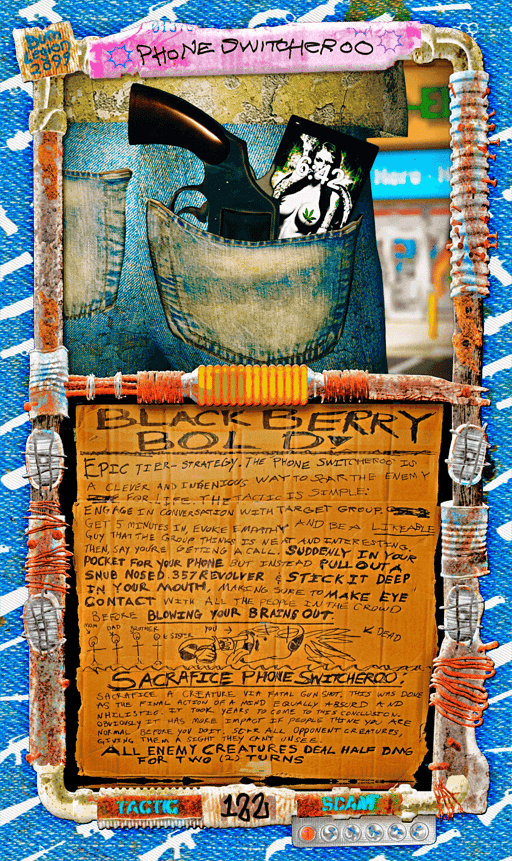 PHONE SWITCHEROO
2099
Here
BLACKBERRY
BOLD
EPIC TIER-STRATEGY. THE PHONE SWITCHEROO IS
A CLEVER AND INGENIOUS WAY TO SCAR THE ENEMY
FOR LIFE. THE TACTIC IS SIMPLE:
ENGAGE IN CONVERSATION WITH TARGET GROUP,
GET 5 MINUTES IN, EVOKE EMPATHY AND BE A LIKEABLE
GUY THAT THE GROUP THINGS IS NEAT AND INTERESTING.
THEN, SAY YOU'RE GETTING A CALL. SUDDENLY IN YOUR
POCKET FOR YOUR PHONE BUT INSTEAD PULL OUT A
SNUB NOSED .357 REVOLVER & STICK IT DEEP
IN YOUR MOUTH, MAKING SURE TO MAKE EYE
CONTACT WITH ALL THE PEOPLE IN THE CROWD
BEFORE BLOWING YOUR BRAINS OUT.
MOM DAD BROTHER SISTER YOU DEAD
SACRAFICE PHONE SWITCHEROO:
SACRAFICE A CREATURE VIA FATAL GUNSHOT. THIS WAS DONE
AS THE FINAL ACTION OF A MIND EQUALLY ABSURD AND
NHILISTIC. IT TOOK YEARS TO COME TO THIS CONCLUSION.
OBVIOUSLY IT HAS MORE IMPACT IF PEOPLE THINK YOU ARE
NORMAL BEFORE YOU DO IT. SCAR ALL OPPONENT CREATURES,
GIVING THEM A SIGHT THEY CAN'T UNSEE.
ALL ENEMY CREATURES DEAL HALF DMG
FOR TWO (2) TURNS
TACTIC 122 SCAM